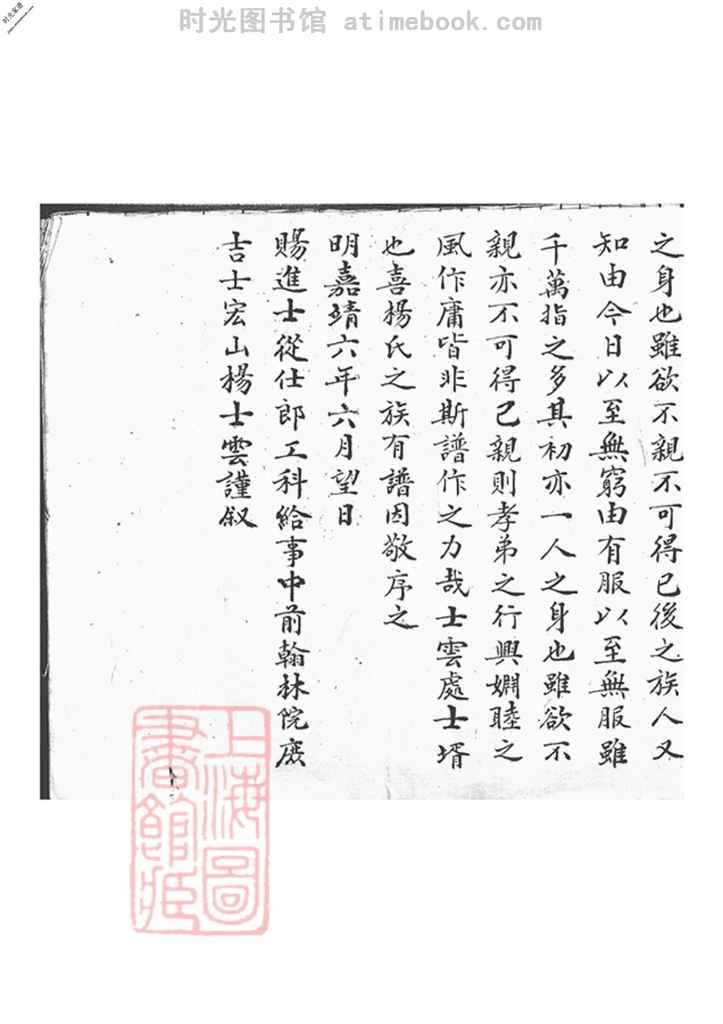 时光图书馆 atimebook.com
之身也雖欲不親不可得已後之族人又
知由今日以至無窮由有服以至無服雖
千萬指之多其初亦一人之身也雖欲不
親亦不可得已親則孝弟之行興婣睦之
風作庸皆非斯譜作之力哉士雲處士壻
也喜楊氏之族有譜因敬序之
明嘉靖六年六月望日
賜進士從仕郎工科給事中前翰林院庶
吉士宏山楊士雲謹叙
上海圖
書館藏